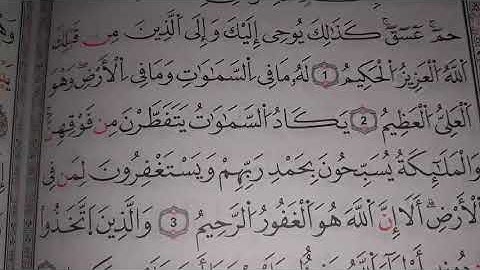 حمٓ عٓسٓقٓ كَذَٰلِكَ يُوحِى إِلَيْكَ وَإِلَى ٱلَّذِينَ مِن قَبْلِكَ
ٱللَّهُ ٱلْعَزِيزُ ٱلْحَكِيمُ 1 لَهُۥ مَا فِى ٱلسَّمَٰوَٰتِ وَمَا فِى ٱلْأَرْضِ وَهُوَ
ٱلْعَلِىُّ ٱلْعَظِيمُ 2 يَكَادُ ٱلسَّمَٰوَٰتُ يَتَفَطَّرْنَ مِن فَوْقِهِنَّ
وَٱلْمَلَٰٓئِكَةُ يُسَبِّحُونَ بِحَمْدِ رَبِّهِمْ وَيَسْتَغْفِرُونَ لِمَن فِى
ٱلْأَرْضِ أَلَآ إِنَّ ٱللَّهَ هُوَ ٱلْغَفُورُ ٱلرَّحِيمُ 3 وَٱلَّذِينَ ٱتَّخَذُوا۟